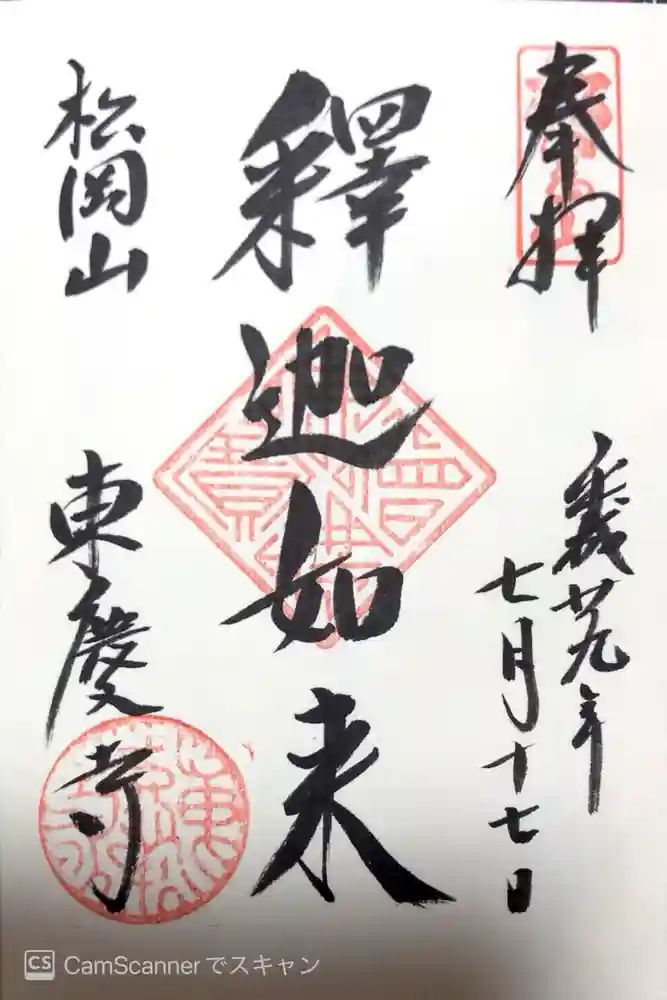 奉拝
平成廿九年
七月十七日
釋迦如来
松岡山
東慶寺
CS CamScannerでスキャン